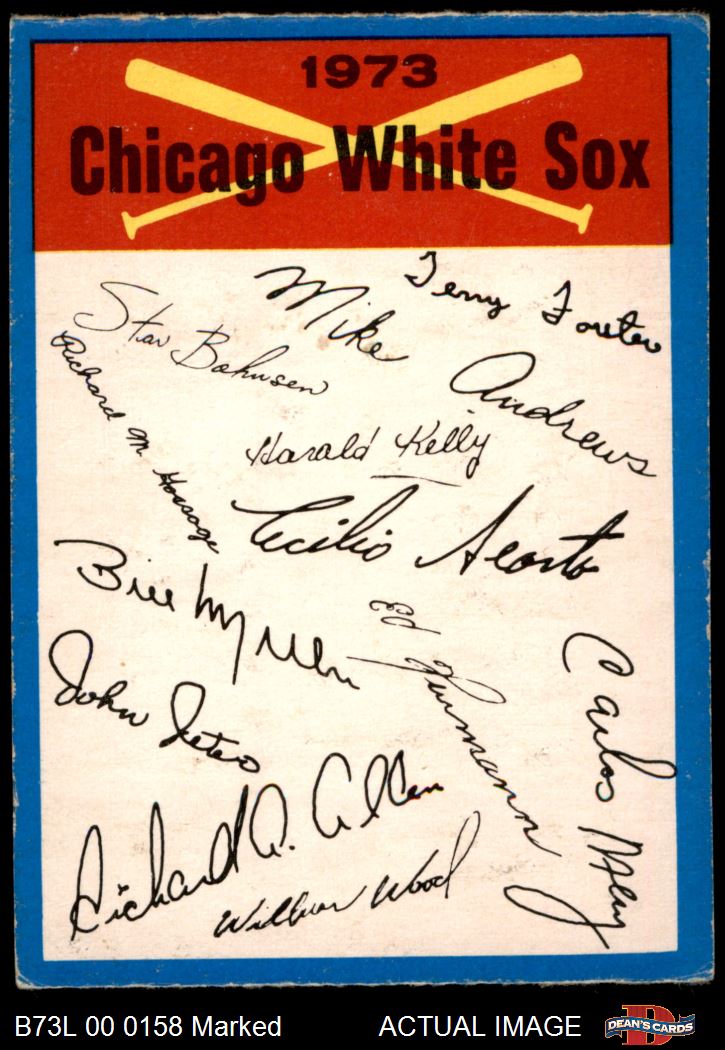 1973
Chicago White Sox
Terry Forster
Mike Andrews
Stan Bahnsen
Richard M. Gossage
Harold Kelly
Cecilio Acosta
Bill Melton
Ed Herrmann
Carlos May
John Jeter
Richard A. Allen
Wilbur Wood
B73L 00 0158 Marked
ACTUAL IMAGE
D
DEAN'S CARDS